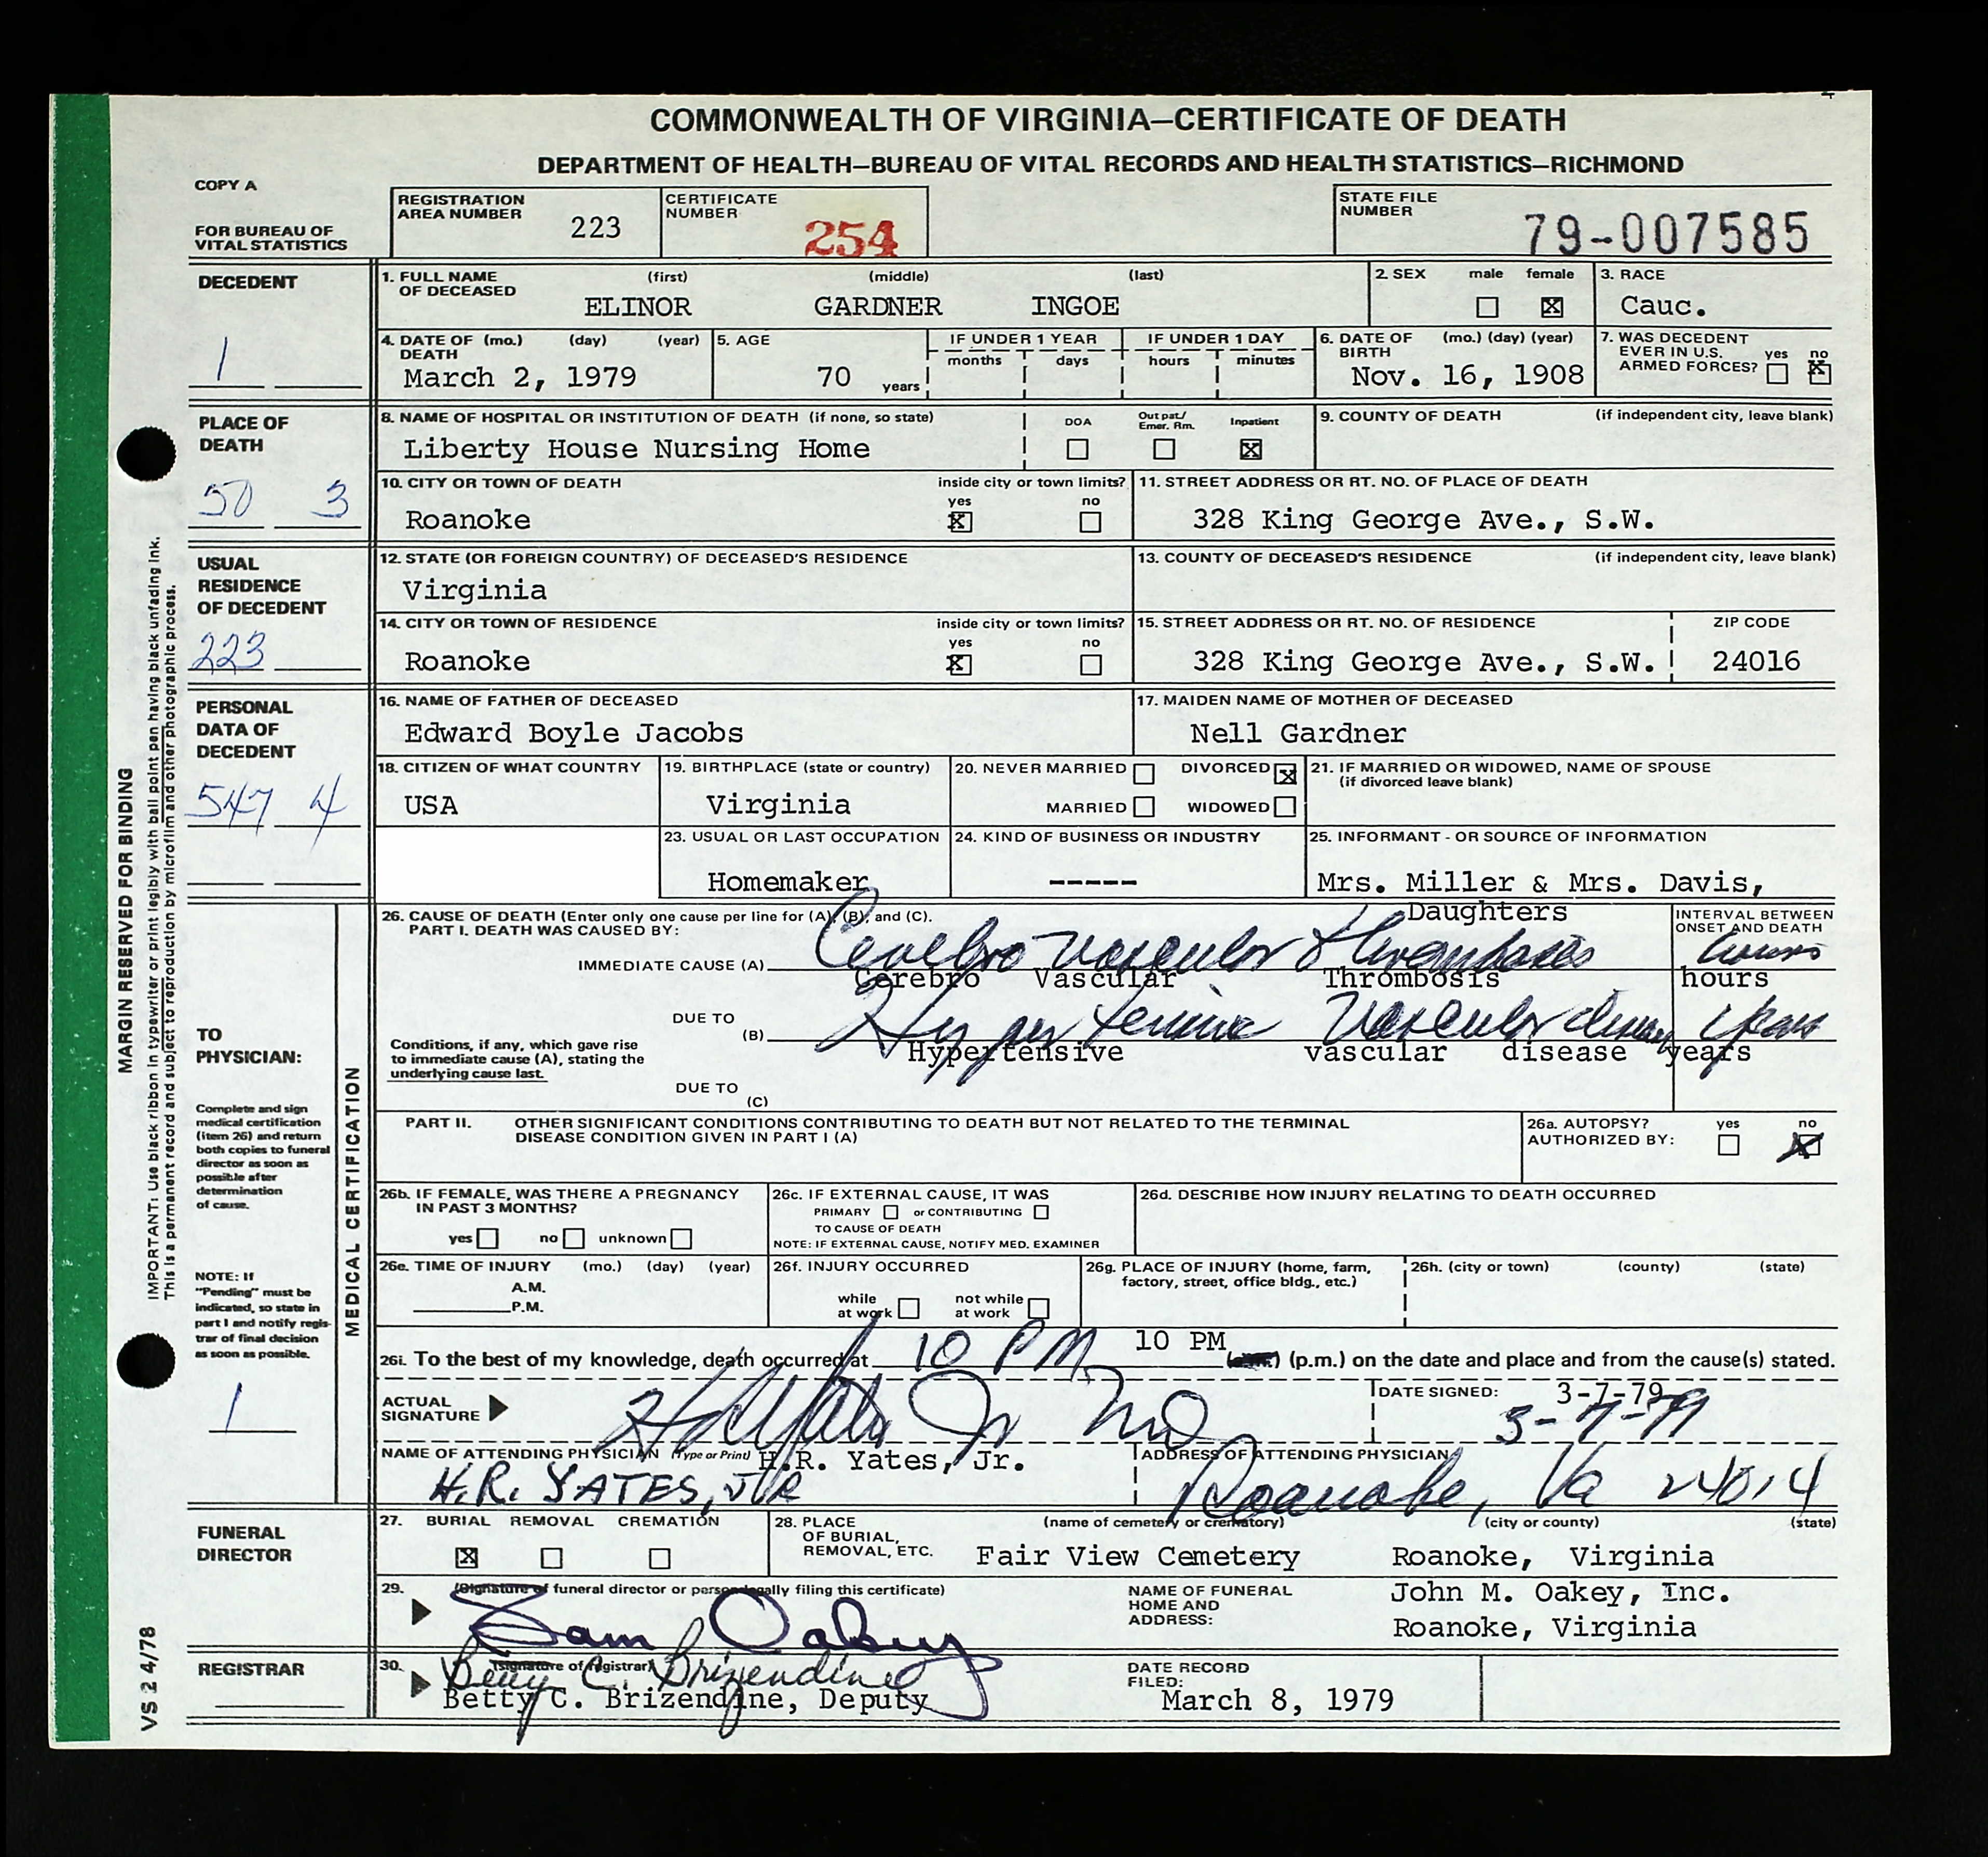 COMMONWEALTH OF VIRGINIA—CERTIFICATE OF DEATH
DEPARTMENT OF HEALTH—BUREAU OF VITAL RECORDS AND HEALTH STATISTICS—RICHMOND
COPY A
FOR BUREAU OF
VITAL STATISTICS
REGISTRATION
AREA NUMBER 223
CERTIFICATE
NUMBER 254
STATE FILE
NUMBER 79-007585
DECEDENT
1
1. FULL NAME (first) (middle) (last)
OF DECEASED
ELINOR GARDNER INGOE
2. SEX male female
3. RACE
Cauc.
4. DATE OF (mo.) (day) (year)
DEATH
March 2, 1979
5. AGE
70 years
IF UNDER 1 YEAR
months days
IF UNDER 1 DAY
hours minutes
6. DATE OF (mo.) (day) (year)
BIRTH
Nov. 16, 1908
7. WAS DECEDENT
EVER IN U.S. yes no
ARMED FORCES?
PLACE OF
DEATH
50 3
8. NAME OF HOSPITAL OR INSTITUTION OF DEATH (if none, so state)
Liberty House Nursing Home
DOA
Out pat./
Emer. Rm.
Inpatient
9. COUNTY OF DEATH (if independent city, leave blank)
10. CITY OR TOWN OF DEATH inside city or town limits?
yes no
Roanoke
11. STREET ADDRESS OR RT. NO. OF PLACE OF DEATH
328 King George Ave., S.W.
USUAL
RESIDENCE
OF DECEDENT
223
12. STATE (OR FOREIGN COUNTRY) OF DECEASED'S RESIDENCE
Virginia
13. COUNTY OF DECEASED'S RESIDENCE (if independent city, leave blank)
14. CITY OR TOWN OF RESIDENCE inside city or town limits?
yes no
Roanoke
15. STREET ADDRESS OR RT. NO. OF RESIDENCE
328 King George Ave., S.W.
ZIP CODE
24016
PERSONAL
DATA OF
DECEDENT
547 4
16. NAME OF FATHER OF DECEASED
Edward Boyle Jacobs
17. MAIDEN NAME OF MOTHER OF DECEASED
Nell Gardner
18. CITIZEN OF WHAT COUNTRY
USA
19. BIRTHPLACE (state or country)
Virginia
20. NEVER MARRIED DIVORCED
MARRIED WIDOWED
21. IF MARRIED OR WIDOWED, NAME OF SPOUSE
(if divorced leave blank)
23. USUAL OR LAST OCCUPATION
Homemaker
24. KIND OF BUSINESS OR INDUSTRY
-----
25. INFORMANT - OR SOURCE OF INFORMATION
Mrs. Miller & Mrs. Davis,
Daughters
MARGIN RESERVED FOR BINDING
IMPORTANT: Use black ribbon in typewriter or print legibly with ball point pen having black unfading ink.
This is a permanent record and subject to reproduction by microfilm and other photographic process.
VS 2 4/78
TO
PHYSICIAN:
Complete and sign
medical certification
(item 26) and return
both copies to funeral
director as soon as
possible after
determination
of cause.
NOTE: If
"Pending" must be
indicated, so state in
part I and notify regis-
trar of final decision
as soon as possible.
1
MEDICAL CERTIFICATION
26. CAUSE OF DEATH (Enter only one cause per line for (A), (B), and (C).
PART I. DEATH WAS CAUSED BY:
INTERVAL BETWEEN
ONSET AND DEATH
IMMEDIATE CAUSE (A) Cerebro Vascular Thrombosis hours
Cerebro Vascular Thrombosis hours
DUE TO
(B) Hypertensive Vascular disease years
Hypertensive vascular disease years
Conditions, if any, which gave rise
to immediate cause (A), stating the
underlying cause last.
DUE TO
(C)
PART II. OTHER SIGNIFICANT CONDITIONS CONTRIBUTING TO DEATH BUT NOT RELATED TO THE TERMINAL
DISEASE CONDITION GIVEN IN PART I (A)
26a. AUTOPSY? yes no
AUTHORIZED BY:
26b. IF FEMALE, WAS THERE A PREGNANCY
IN PAST 3 MONTHS?
yes no unknown
26c. IF EXTERNAL CAUSE, IT WAS
PRIMARY or CONTRIBUTING
TO CAUSE OF DEATH
NOTE: IF EXTERNAL CAUSE, NOTIFY MED. EXAMINER
26d. DESCRIBE HOW INJURY RELATING TO DEATH OCCURRED
26e. TIME OF INJURY (mo.) (day) (year)
A.M.
P.M.
26f. INJURY OCCURRED
while at work not while at work
26g. PLACE OF INJURY (home, farm,
factory, street, office bldg., etc.)
26h. (city or town) (county) (state)
10 PM
26i. To the best of my knowledge, death occurred at 10 PM (p.m.) on the date and place and from the cause(s) stated.
ACTUAL
SIGNATURE H R Yates Jr MD
DATE SIGNED: 3-7-79
3-7-79
NAME OF ATTENDING PHYSICIAN (Type or Print) H.R. Yates, Jr.
H.R. YATES, JR
ADDRESS OF ATTENDING PHYSICIAN
Roanoke, Va 24014
FUNERAL
DIRECTOR
27. BURIAL REMOVAL CREMATION
28. PLACE
OF BURIAL,
REMOVAL, ETC.
(name of cemetery or crematory) (city or county) (state)
Fair View Cemetery Roanoke, Virginia
29. (Signature of funeral director or person legally filing this certificate)
Sam Oakey
NAME OF FUNERAL
HOME AND
ADDRESS:
John M. Oakey, Inc.
Roanoke, Virginia
REGISTRAR
30. (signature of registrar)
Betty C. Brizendine
Betty C. Brizendine, Deputy
DATE RECORD
FILED:
March 8, 1979